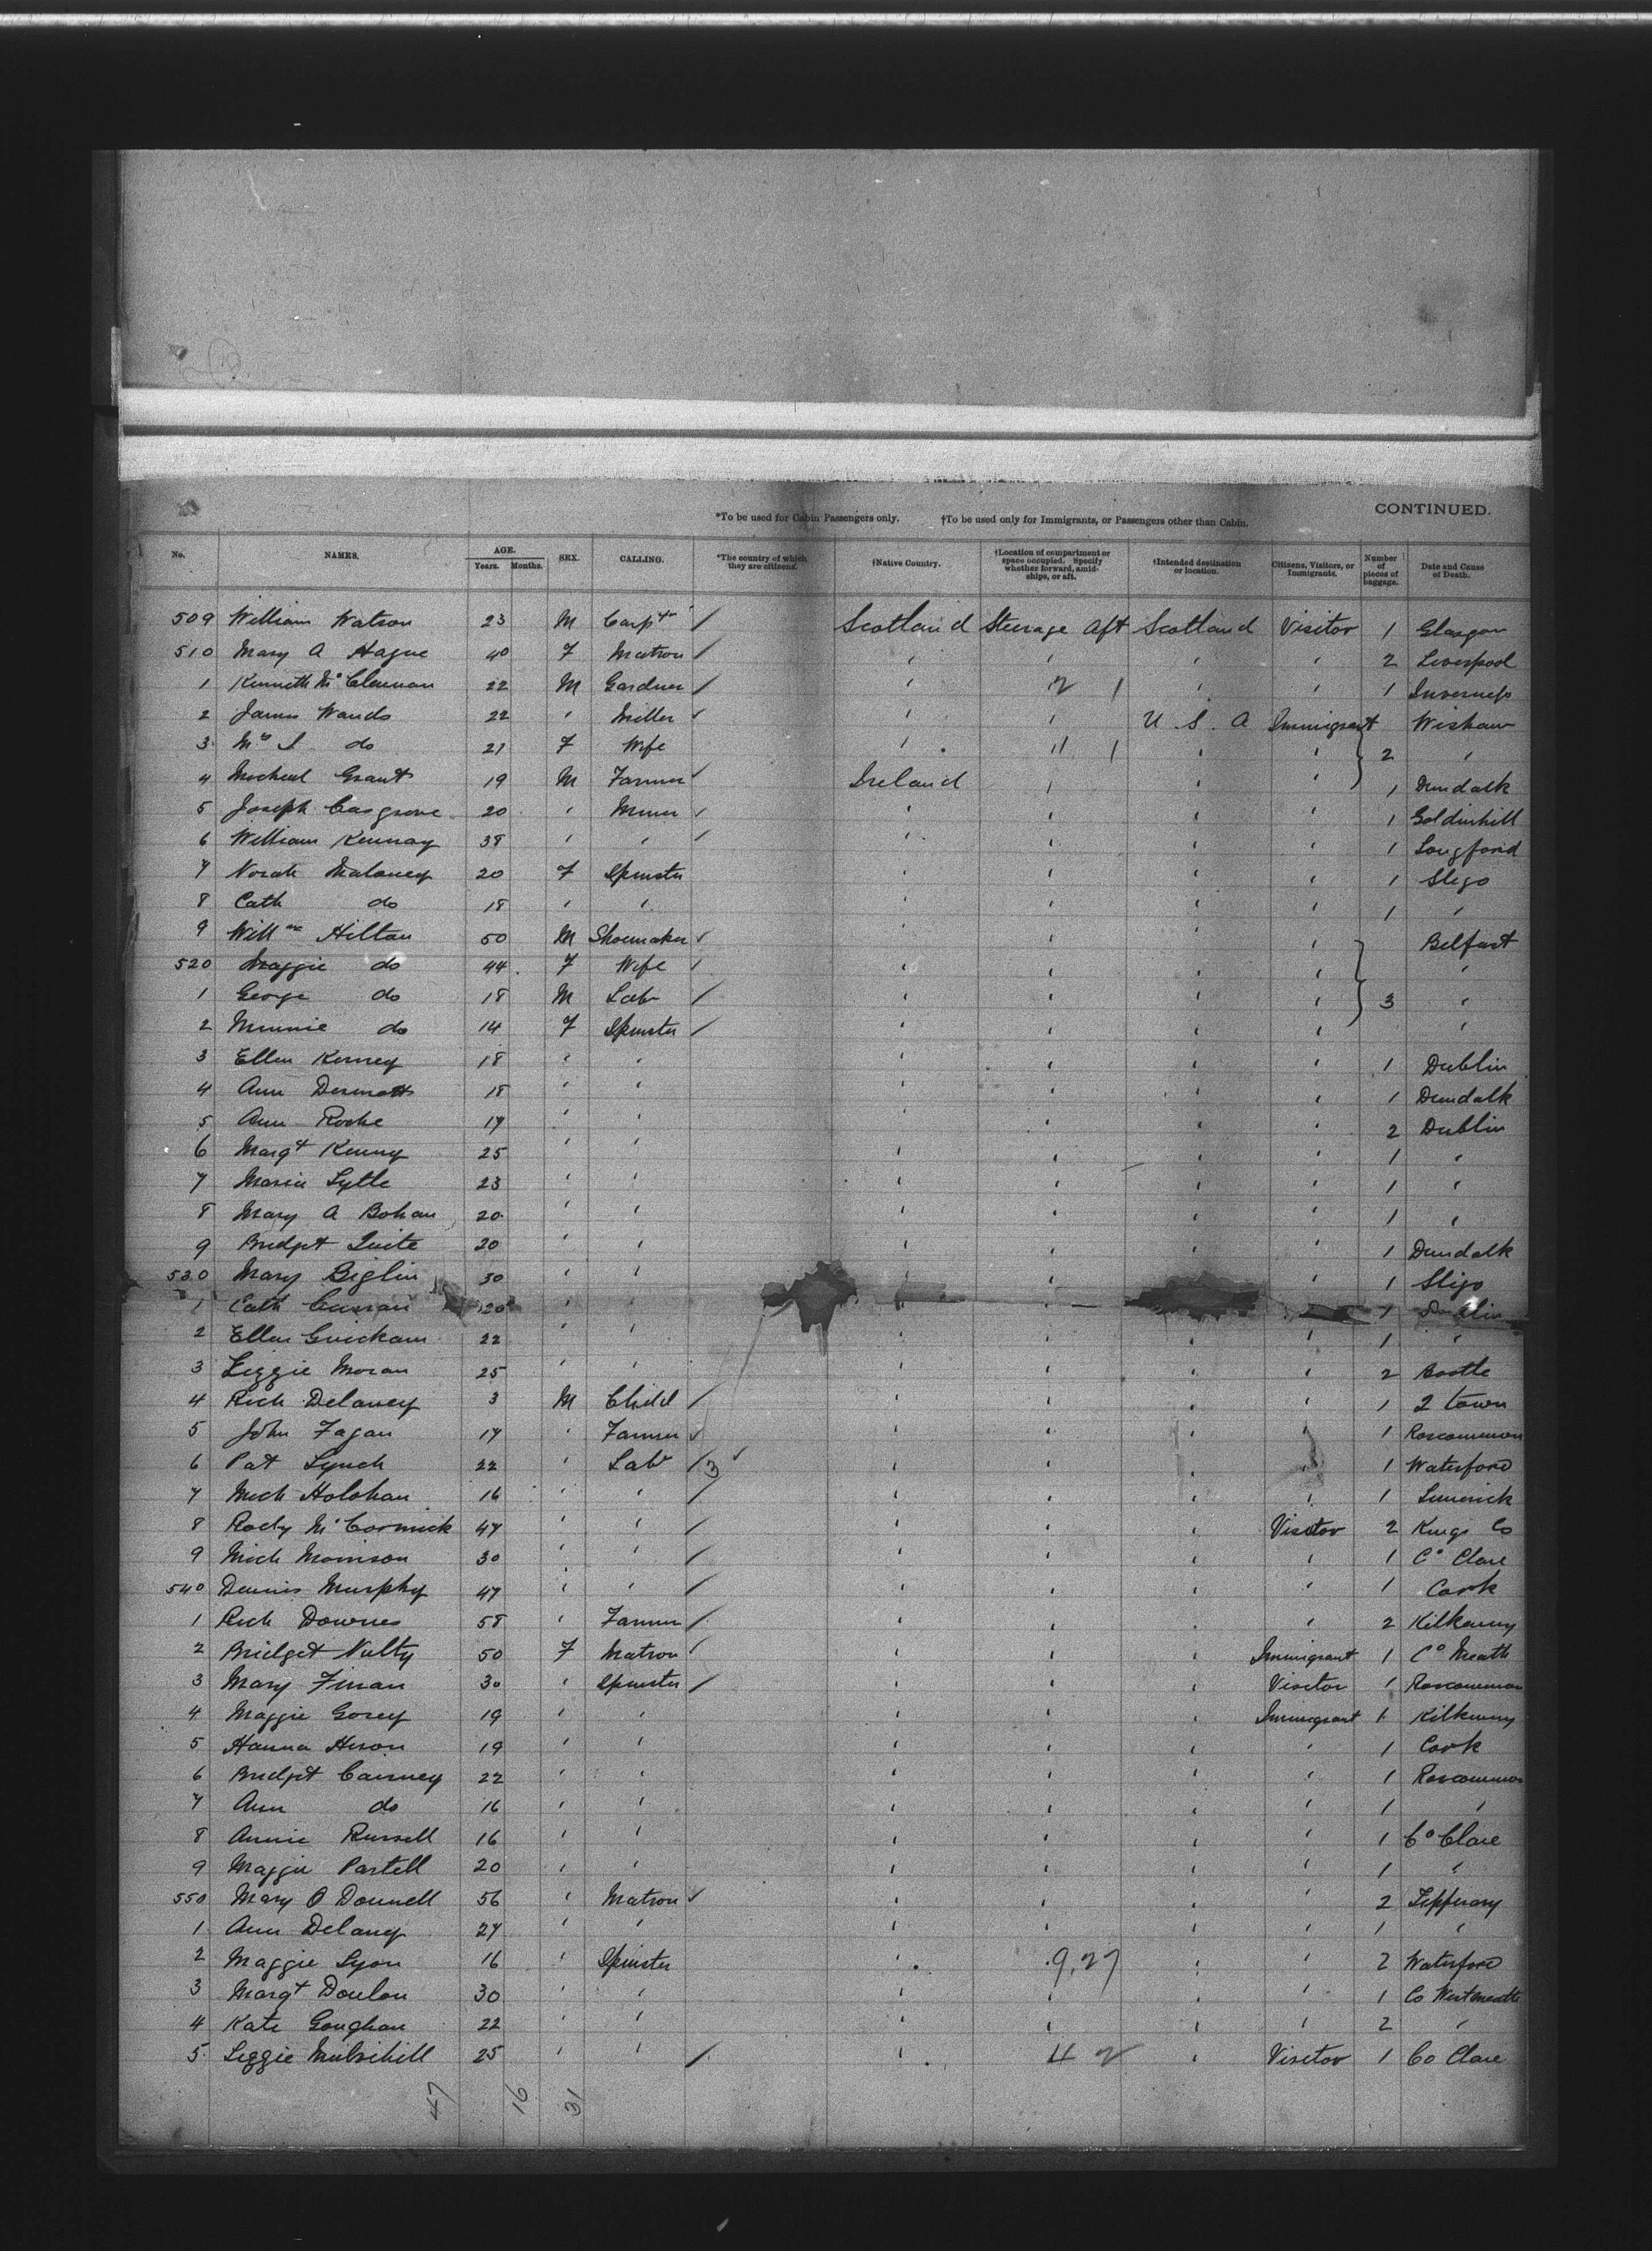 CONTINUED.
*To be used for Cabin Passengers only. †To be used only for Immigrants, or Passengers other than Cabin.
No. NAMES. AGE. Years. Months. SEX. CALLING. *The country of which they are citizens. †Native Country. †Location of compartment or space occupied. Specify whether forward, amidships, or aft. †Intended destination or location. Citizens, Visitors, or Immigrants. Number of pieces of baggage. Date and Cause of Death.
509 William Watson 23 M Carptr / Scotland Steerage Aft Scotland Visitor 1 Glasgow
510 Mary A Hague 40 F Matron / " " " " 2 Liverpool
1 Kenneth McClennan 22 M Gardner / " 2 1 " " 1 Inverness
2 James Wands 22 " Miller ✓ " " U.S.A Immigrant Wishaw
3 Mrs J do 21 F Wife " 11 1 " " } 2 "
4 Micheal Grant 19 M Farmer ✓ Ireland " " " 1 Dundalk
5 Joseph Casgrove 20 " Miner ✓ " " " " 1 Goldinhill
6 William Kennay 38 " " ✓ " " " " 1 Longford
7 Norah Maloney 20 F Spinster " " " " 1 Sligo
8 Cath do 18 " " " " " " 1 "
9 Willm Hilton 50 M Shoemaker ✓ " " " " Belfast
520 Maggie do 44 F Wife / " " " " "
1 George do 18 M Labr / " " " " } 3 "
2 Minnie do 14 F Spinster / " " " " "
3 Ellen Kerney 18 " " " " " " 1 Dublin
4 Ann Dermott 18 " " " " " " 1 Dundalk
5 Ann Roche 17 " " " " " " 2 Dublin
6 Margt Kenny 25 " " " " " " 1 "
7 Maria Lytle 23 " " " " " " 1 "
8 Mary A Bohan 20 " " " " " " 1 "
9 Bridget Quite 20 " " " " " " 1 Dundalk
530 Mary Biglin 30 " " " " " 1 Sligo
1 Cath Curran 20 " " " " 1 Dublin
2 Ellen Guickam 22 " " " " " " 1 "
3 Lizzie Moran 25 " " " " " " 2 Bootle
4 Rich Delaney 3 M Child / " " " " 1 2 town
5 John Fagan 17 " Farmer ✓ " " " " 1 Roscommon
6 Pat Lynch 22 " Labr / 3 ✓ " " " " 1 Waterford
7 Mich Holohan 16 " " / " " " " 1 Limerick
8 Rody McCormick 47 " " / " " " Visitor 2 Kings Co
9 Mich Morrison 30 " " / " " " " 1 Co Clare
540 Dennis Murphy 47 " " / " " " " 1 Cork
1 Rich Downes 58 " Farmer / " " " " 2 Kilkenny
2 Bridget Nulty 50 F Matron / " " " Immigrant 1 Co Meath
3 Mary Finan 30 " Spinster / " " " Visitor 1 Roscommon
4 Maggie Gorey 19 " " " " " Immigrant 1 Kilkenny
5 Hanna Heron 19 " " " " " " 1 Cork
6 Bridget Cairney 22 " " " " " " 1 Roscommon
7 Ann do 16 " " " " " " 1 "
8 Annie Russell 16 " " " " " " 1 Co Clare
9 Maggie Partell 20 " " " " " " 1 "
550 Mary O Donnell 56 " Matron ✓ " " " " 2 Tipperary
1 Ann Delany 27 " " " " " " 1 "
2 Maggie Lyon 16 " Spinster " 9,27 " " 2 Waterford
3 Margt Donlon 30 " " " " " " 1 Co Westmeath
4 Kate Goughan 22 " " " " " " 2 "
5 Lizzie Mulvihill 25 " " / " 4 2 " Visitor 1 Co Clare
47 16 31